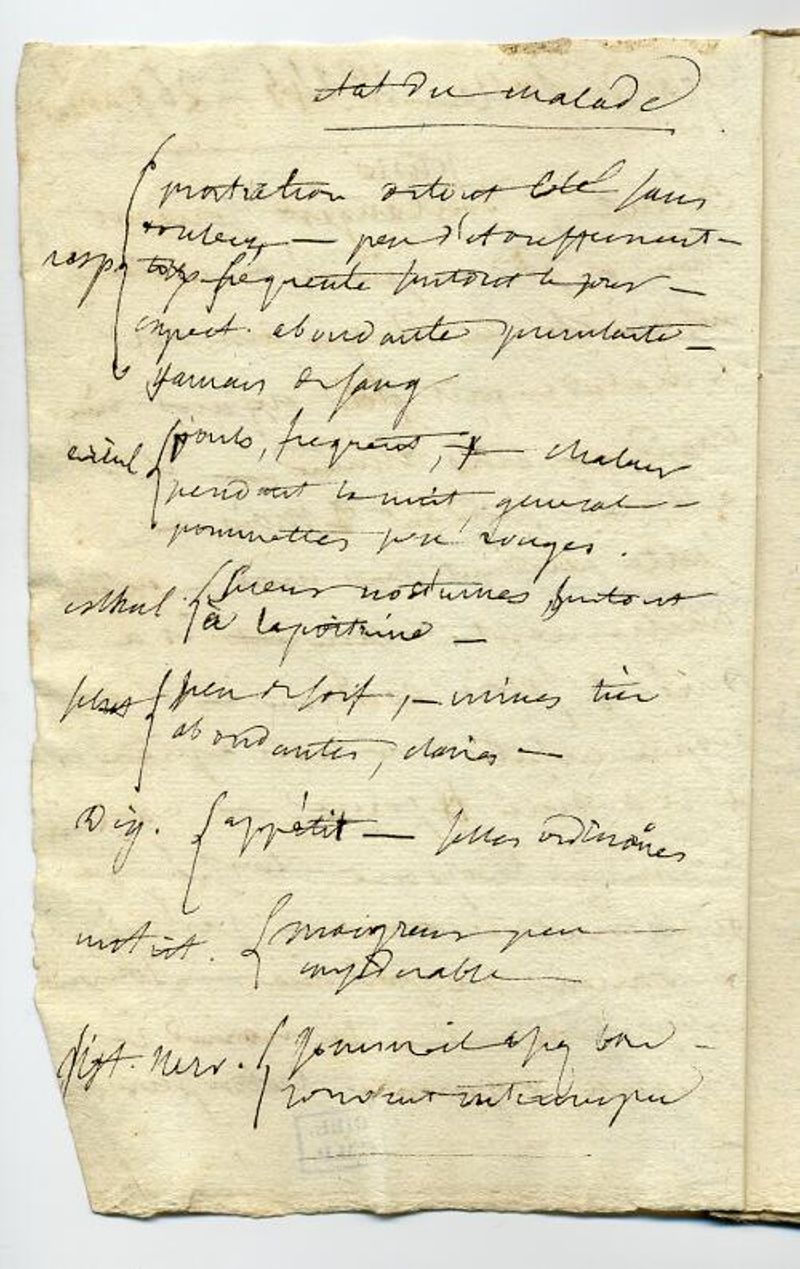 état du malade
prostration surtout coté sans
douleur, — peu d'étouffement —
resp. toux fréquente surtout le jour —
expect. abondante purulente —
jamais de sang
pouls, fréquent, — chaleur
pendant la nuit, general —
pommettes peu rouges.
exhal. sueurs nocturnes, surtout
à la poitrine —
peu de soif, — urines très
abondantes, claires —
Dig. appétit — selles ordinaires
nutrit. maigreur peu
considerable —
sist. nerv. sommeil assez bon —
souvent interrompu